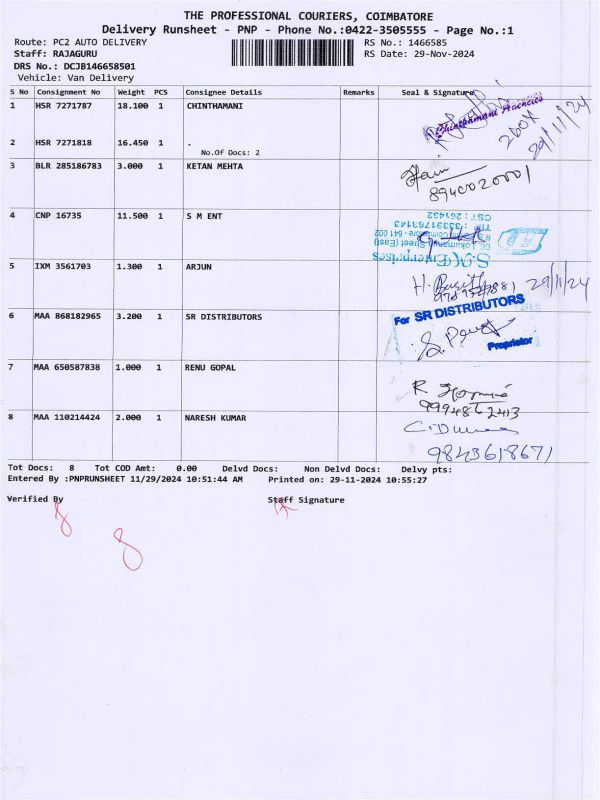 THE PROFESSIONAL COURIERS, COIMBATORE
Delivery Runsheet - PNP - Phone No.:0422-3505555 - Page No.:1
Route: PC2 AUTO DELIVERY RS No.: 1466585
Staff: RAJAGURU RS Date: 29-Nov-2024
DRS No.: DCJB146658501
Vehicle: Van Delivery
S No Consignment No Weight PCS Consignee Details Remarks Seal & Signature
1 HSR 7271787 18.100 1 CHINTHAMANI
Chinthamani Agencies
29/11/24
2 HSR 7271818 16.450 1 .
No.Of Docs: 2
3 BLR 285186783 3.000 1 KETAN MEHTA
8940020001
4 CNP 16735 11.500 1 S M ENT
5 IXM 3561703 1.300 1 ARJUN
29/11/24
6 MAA 868182965 3.200 1 SR DISTRIBUTORS
For SR DISTRIBUTORS
Proprietor
7 MAA 650587838 1.000 1 RENU GOPAL
9994862413
8 MAA 110214424 2.000 1 NARESH KUMAR
9843618671
Tot Docs: 8 Tot COD Amt: 0.00 Delvd Docs: Non Delvd Docs: Delvy pts:
Entered By :PNPRUNSHEET 11/29/2024 10:51:44 AM Printed on: 29-11-2024 10:55:27
Verified By Staff Signature